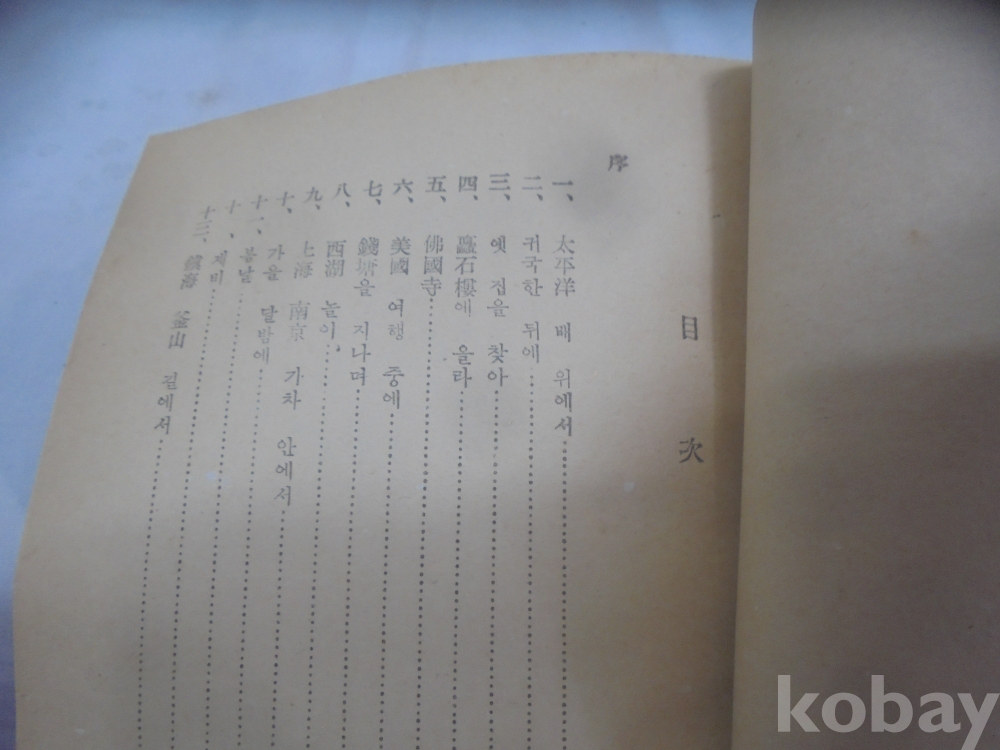 目次
序
一、太平洋 배 위에서
二、귀국한 뒤에
三、옛 집을 찾아
四、矗石樓에 올라
五、佛國寺
六、美國 여행 중에
七、錢塘을 지나며
八、西湖 놀이
九、上海 南京 가차 안에서
十、가을 달밤에
十一、봄날
十、제비
十三、鎭海 釜山 길에서
kobay